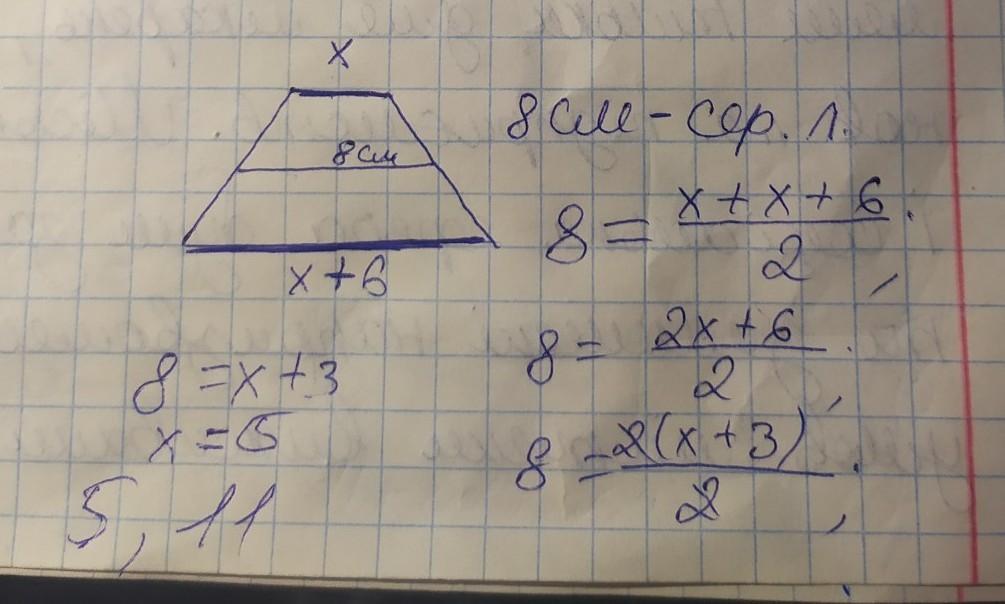 x
8см
x+6
8см - сер. л.
8 = (x + x + 6)/2;
8 = (2x + 6)/2;
8 = 2(x + 3)/2;
8 = x + 3
x = 5
5, 11